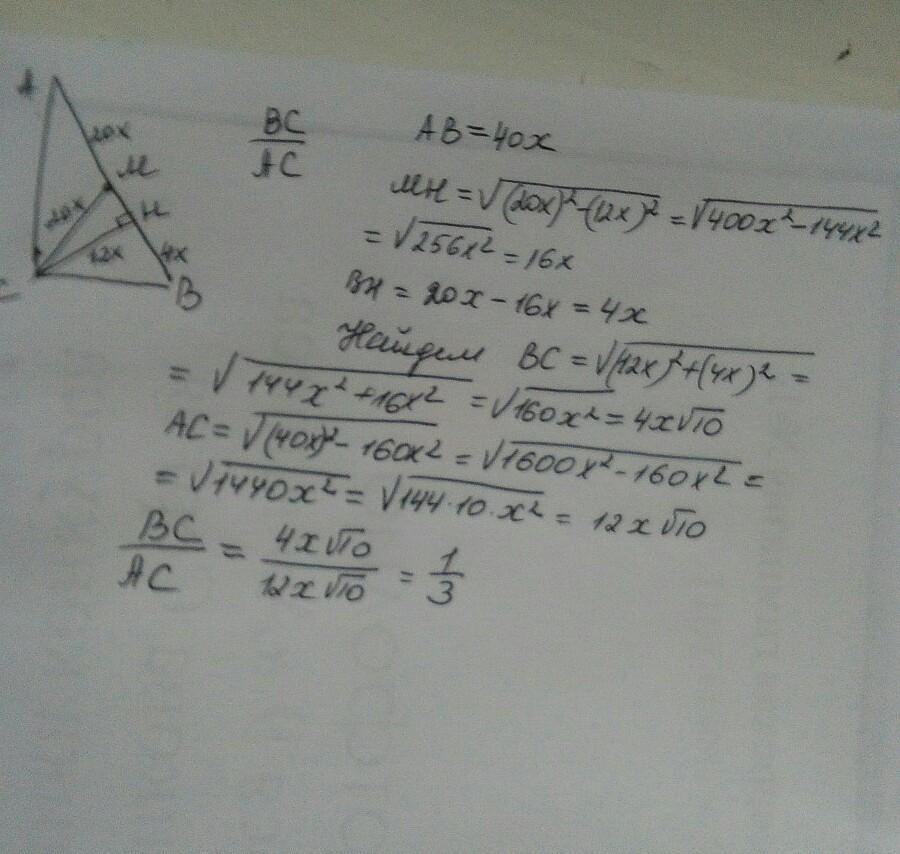 A
20x
M
20x
H
12x
4x
C
B
BC/AC
AB=40x
MH = √((20x)²-(12x)²) = √(400x²-144x²)
= √(256x²) = 16x
BH = 20x - 16x = 4x
Найдем BC = √((12x)²+(4x)²) =
= √(144x²+16x²) = √(160x²) = 4x√10
AC = √((40x)²-160x²) = √(1600x²-160x²) =
= √(1440x²) = √(144·10·x²) = 12x√10
BC/AC = 4x√10/12x√10 = 1/3